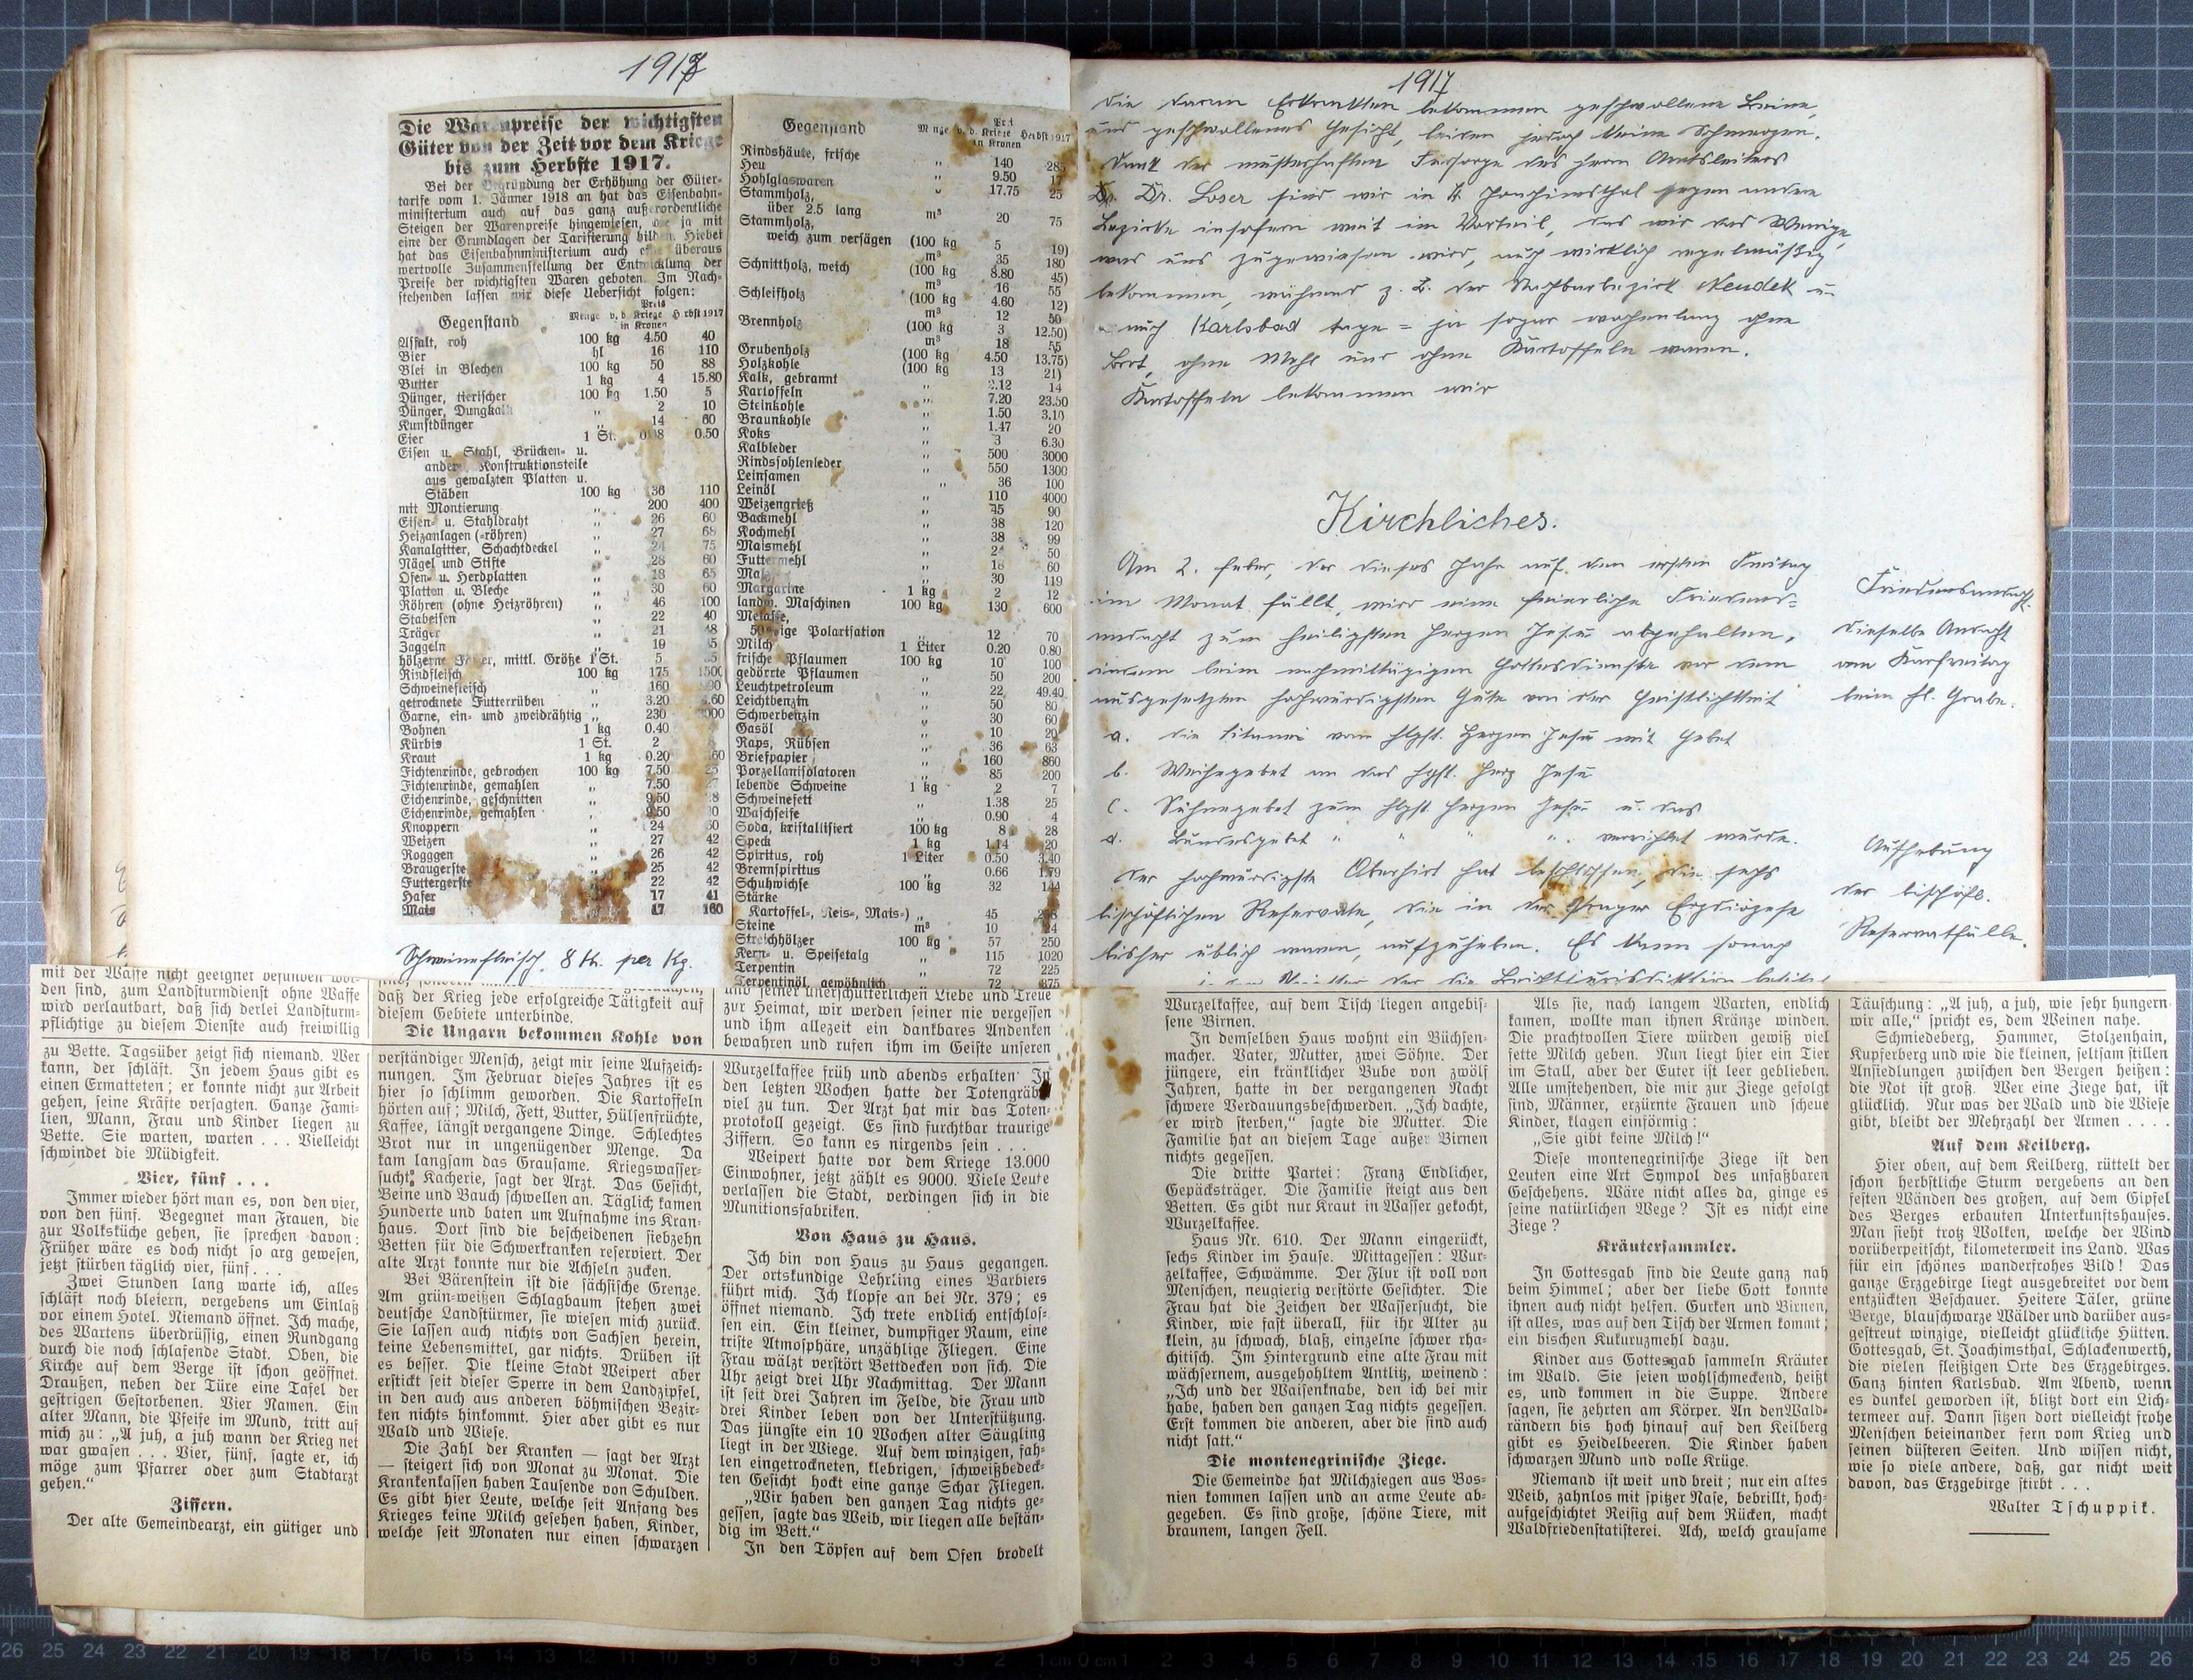 1917
Die Warenpreise der wichtigsten
Güter von der Zeit vor dem Kriege
bis zum Herbste 1917.
Bei der Begründung der Erhöhung der Güter-
tarife vom 1. Jänner 1918 an hat das Eisenbahn-
ministerium auch auf das ganz außerordentliche
Steigen der Warenpreise hingewiesen, die ja mit
eine der Grundlagen der Tarifierung bilden. Hiebei
hat das Eisenbahnministerium auch eine überaus
wertvolle Zusammenstellung der Entwicklung der
Preise der wichtigsten Waren geboten. Im Nach-
stehenden lassen wir diese Uebersicht folgen:
Preis
Gegenstand Menge v. d. Kriege Herbst 1917
in Kronen
Asfalt, roh 100 kg 4.50 40
Bier hl 16 110
Blei in Blechen 100 kg 50 88
Butter 1 kg 4 15.80
Dünger, tierischer 100 kg 1.50 5
Dünger, Dungkalk „ 2 10
Kunstdünger „ 14 60
Eier 1 St. 0.50
Eisen u. Stahl, Brücken- u.
andere Konstruktionsteile
aus gewalzten Platten u.
Stäben 100 kg 36 110
mit Montierung „ 200 400
Eisen- u. Stahldraht „ 26 60
Heizanlagen (-röhren) „ 27 68
Kanalgitter, Schachtdeckel „ 24 75
Nägel und Stifte „ 28 60
Ofen- u. Herdplatten „ 18 65
Platten u. Bleche „ 30 60
Röhren (ohne Heizröhren) „ 46 100
Stabeisen „ 22 40
Träger „ 21 48
Zaggeln „ 19
hölzerne mittl. Größe 1 St. 5
Rindfleisch 100 kg 175 1500
Schweinefleisch „ 160
getrocknete Futterrüben „ 3.20
Garne, ein- und zweidrähtig „ 230
Bohnen 1 kg 0.40
Kürbis 1 St. 2
Kraut 1 kg 0.20
Fichtenrinde, gebrochen 100 kg 7.50
Fichtenrinde, gemahlen „ 7.50
Eichenrinde, geschnitten „ 9.50
Eichenrinde, gemahlen „ 9.50
Knoppern „ 24
Weizen „ 27 42
Rogggen „ 26 42
Braugerste 25 42
Futtergerste 22 42
Hafer 17 41
Mais 17 160
Schweinefleisch 8 K. per Kg.
Gegenstand Menge v. d. Kriege Herbst 1917
in Kronen
Rindshäute, frische „ 140 285
Heu „ 9.50 17
Hohlglaswaren „ 17.75 25
Stammholz,
über 2.5 lang m³ 20 75
Stammholz,
weich zum versägen (100 kg 5 19)
m³ 35 180
Schnittholz, weich (100 kg 8.80 45)
m³ 16 55
Schleifholz (100 kg 4.60 12)
m³ 12 50
Brennholz (100 kg 3 12.50)
m³ 18 55
Grubenholz (100 kg 4.50 13.75)
Holzkohle (100 kg 13 21)
Kalk, gebrannt „ 2.12 14
Kartoffeln „ 7.20 23.50
Steinkohle „ 1.50 3.10
Braunkohle „ 1.47 20
Koks „ 3 6.30
Kalbleder „ 500 3000
Rindssohlenleder „ 550 1300
Leinsamen „ 36 100
Leinöl „ 110 4000
Weizengrieß „ 45 90
Backmehl „ 38 120
Kochmehl „ 38 99
Maismehl „ 50
Futtermehl „ 60
„ 30 119
Margarine 1 kg 2 12
landw. Maschinen 100 kg 130 600
Melasse,
50%ige Polarisation „ 12 70
Milch 1 Liter 0.20 0.80
frische Pflaumen 100 kg 10 100
gedörrte Pflaumen „ 50 200
Leuchtpetroleum „ 22 49.40
Leichtbenzin „ 50 80
Schwerbenzin „ 30 60
Gasöl „ 10 20
Raps, Rübsen „ 36 63
Briefpapier „ 160 860
Porzellanisolatoren „ 85 200
lebende Schweine 1 kg 2 7
Schweinefett „ 1.38 25
Waschseife „ 0.90 4
Soda, kristallisiert 100 kg 8 28
Speck 1 kg 1.14 20
Spiritus, roh 1 Liter 0.50 3.40
Brennspiritus 0.66 1.79
Schuhwichse 100 kg 32 144
Stärke
Kartoffel-, Reis-, Mais-) „ 45
Steine m³ 10 24
Streichhölzer 100 kg 57 250
Kern- u. Speisetalg „ 115 1020
Terpentin „ 72 225
Terpentinöl, gewöhnlich „ 72 375
mit der Waffe nicht geeignet befunden wor-
den sind, zum Landsturmdienst ohne Waffe
wird verlautbart, daß sich derlei Landsturm-
pflichtige zu diesem Dienste auch freiwillig
daß der Krieg jede erfolgreiche Tätigkeit auf
diesem Gebiete unterbinde.
Die Ungarn bekommen Kohle von
und seiner unerschütterlichen Liebe und Treue
zur Heimat, wir werden seiner nie vergessen
und ihm allezeit ein dankbares Andenken
bewahren und rufen ihm im Geiste unseren
zu Bette. Tagsüber zeigt sich niemand. Wer
kann, der schläft. In jedem Haus gibt es
einen Ermatteten; er konnte nicht zur Arbeit
gehen, seine Kräfte versagten. Ganze Fami-
lien, Mann, Frau und Kinder liegen zu
Bette. Sie warten, warten . . . Vielleicht
schwindet die Müdigkeit.
Vier, fünf . . .
Immer wieder hört man es, von den vier,
von den fünf. Begegnet man Frauen, die
zur Volksküche gehen, sie sprechen davon:
Früher wäre es doch nicht so arg gewesen,
jetzt stürben täglich vier, fünf. . .
Zwei Stunden lang warte ich, alles
schläft noch bleiern, vergebens um Einlaß
vor einem Hotel. Niemand öffnet. Ich mache,
des Wartens überdrüssig, einen Rundgang
durch die noch schlafende Stadt. Oben, die
Kirche auf dem Berge ist schon geöffnet.
Draußen, neben der Türe eine Tafel der
gestrigen Gestorbenen. Vier Namen. Ein
alter Mann, die Pfeife im Mund, tritt auf
mich zu: „A juh, a juh wann der Krieg net
war gwasen . . . Vier, fünf, sagte er, ich
möge zum Pfarrer oder zum Stadtarzt
gehen.“
Ziffern.
Der alte Gemeindearzt, ein gütiger und
verständiger Mensch, zeigt mir seine Aufzeich-
nungen. Im Februar dieses Jahres ist es
hier so schlimm geworden. Die Kartoffeln
hörten auf; Milch, Fett, Butter, Hülsenfrüchte,
Kaffee, längst vergangene Dinge. Schlechtes
Brot nur in ungenügender Menge. Da
kam langsam das Grausame. Kriegswasser-
sucht, Kacherie, sagt der Arzt. Das Gesicht,
Beine und Bauch schwellen an. Täglich kamen
Hunderte und baten um Aufnahme ins Kran-
haus. Dort sind die bescheidenen siebzehn
Betten für die Schwerkranken reserviert. Der
alte Arzt konnte nur die Achseln zucken.
Bei Bärenstein ist die sächsische Grenze.
Am grün-weißen Schlagbaum stehen zwei
deutsche Landstürmer, sie wiesen mich zurück.
Sie lassen auch nichts von Sachsen herein,
keine Lebensmittel, gar nichts. Drüben ist
es besser. Die kleine Stadt Weipert aber
erstickt seit dieser Sperre in dem Landzipfel,
in den auch aus anderen böhmischen Bezir-
ken nichts hinkommt. Hier aber gibt es nur
Wald und Wiese.
Die Zahl der Kranken — sagt der Arzt
— steigert sich von Monat zu Monat. Die
Krankenkassen haben Tausende von Schulden.
Es gibt hier Leute, welche seit Anfang des
Krieges keine Milch gesehen haben, Kinder,
welche seit Monaten nur einen schwarzen
Wurzelkaffee früh und abends erhalten. In
den letzten Wochen hatte der Totengräber
viel zu tun. Der Arzt hat mir das Toten-
protokoll gezeigt. Es sind furchtbar traurige
Ziffern. So kann es nirgends sein . . .
Weipert hatte vor dem Kriege 13.000
Einwohner, jetzt zählt es 9000. Viele Leute
verlassen die Stadt, verdingen sich in die
Munitionsfabriken.
Von Haus zu Haus.
Ich bin von Haus zu Haus gegangen.
Der ortskundige Lehrling eines Barbiers
führt mich. Ich klopfe an bei Nr. 379; es
öffnet niemand. Ich trete endlich entschlos-
sen ein. Ein kleiner, dumpfiger Raum, eine
triste Atmosphäre, unzählige Fliegen. Eine
Frau wälzt verstört Bettdecken von sich. Die
Uhr zeigt drei Uhr Nachmittag. Der Mann
ist seit drei Jahren im Felde, die Frau und
drei Kinder leben von der Unterstützung.
Das jüngste ein 10 Wochen alter Säugling
liegt in der Wiege. Auf dem winzigen, fah-
len eingetrockneten, klebrigen, schweißbedeck-
ten Gesicht hockt eine ganze Schar Fliegen.
„Wir haben den ganzen Tag nichts ge-
gessen, sagte das Weib, wir liegen alle bestän-
dig im Bett.“
In den Töpfen auf dem Ofen brodelt
1917
die daran Erkrankten bekommen geschwollene Beine,
und geschwollenes Gesicht, leiden jedoch keine Schmerzen.
Dank der musterhaften Fürsorge des Herrn Amtsleiters
Dr. Loser sind wir in St Joachimsthal gegen andere
Bezirke insofern weit im Vorteil, das wir das Wenige,
was uns zugewiesen wird, auch wirklich regelmäßig
bekommen, während z. B. der Nachbarbezirk Neudek u-
auch Karlsbad tage = ja sogar wochenlang ohne
Brot, ohne Mehl und ohne Kartoffeln waren.
Kartoffeln bekommen wir
Kirchliches.
Am 2. Feber, der dieses Jahr auf den ersten Freitag
im Monat fällt, wird eine feierliche Friedens=
andacht zum heiligsten Herzen Jesu abgehalten,
indem beim nachmittägigen Gottesdienste vor dem
ausgesetzten hochwürdigsten Gute von der Geistlichkeit
a. die Litanei vom hlgst. Herzen Jesu mit Gebet
b. Weihegebet an das hgst. Herz Jesu
c. Sühnegebet zum hlgst Herzen Jesu u. das
d. Bundesgebet " " " ". verrichtet wurde.
Der hochwürdigste Oberhirt hat beschlossen, die sechs
bischöflichen Reservate, die in der Prager Erzdiözese
bisher üblich waren, aufzuheben. Es kann sonach
Friedensandacht.
dieselbe Andacht
am Karfreitag
beim hl. Grabe.
Aufhebung
der bischöfl.
Reservatfälle.
Wurzelkaffee, auf dem Tisch liegen angebis-
sene Birnen.
In demselben Haus wohnt ein Büchsen-
macher. Vater, Mutter, zwei Söhne. Der
jüngere, ein kränklicher Bube von zwölf
Jahren, hatte in der vergangenen Nacht
schwere Verdauungsbeschwerden. „Ich dachte,
er wird sterben,“ sagte die Mutter. Die
Familie hat an diesem Tage außer Birnen
nichts gegessen.
Die dritte Partei: Franz Endlicher,
Gepäcksträger. Die Familie steigt aus den
Betten. Es gibt nur Kraut in Wasser gekocht,
Wurzelkaffee.
Haus Nr. 610. Der Mann eingerückt,
sechs Kinder im Hause. Mittagessen: Wur-
zelkaffee, Schwämme. Der Flur ist voll von
Menschen, neugierig verstörte Gesichter. Die
Frau hat die Zeichen der Wassersucht, die
Kinder, wie fast überall, für ihr Alter zu
klein, zu schwach, blaß, einzelne schwer rha-
chitisch. Im Hintergrund eine alte Frau mit
wächsernem, ausgehöhltem Antlitz, weinend:
„Ich und der Waisenknabe, den ich bei mir
habe, haben den ganzen Tag nichts gegessen.
Erst kommen die anderen, aber die sind auch
nicht satt.“
Die montenegrinische Ziege.
Die Gemeinde hat Milchziegen aus Bos-
nien kommen lassen und an arme Leute ab-
gegeben. Es sind große, schöne Tiere, mit
braunem, langen Fell.
Als sie, nach langem Warten, endlich
kamen, wollte man ihnen Kränze winden.
Die prachtvollen Tiere würden gewiß viel
fette Milch geben. Nun liegt hier ein Tier
im Stall, aber der Euter ist leer geblieben.
Alle umstehenden, die mir zur Ziege gefolgt
sind, Männer, erzürnte Frauen und scheue
Kinder, klagen einförmig:
„Sie gibt keine Milch!“
Diese montenegrinische Ziege ist den
Leuten eine Art Sympol des unfaßbaren
Geschehens. Wäre nicht alles da, ginge es
seine natürlichen Wege? Ist es nicht eine
Ziege?
Kräutersammler.
In Gottesgab sind die Leute ganz nah
beim Himmel; aber der liebe Gott konnte
ihnen auch nicht helfen. Gurken und Birnen,
ist alles, was auf den Tisch der Armen kommt;
ein bischen Kukuruzmehl dazu.
Kinder aus Gottesgab sammeln Kräuter
im Wald. Sie seien wohlschmeckend, heißt
es, und kommen in die Suppe. Andere
sagen, sie zehrten am Körper. An den Wald-
rändern bis hoch hinauf auf den Keilberg
gibt es Heidelbeeren. Die Kinder haben
schwarzen Mund und volle Krüge.
Niemand ist weit und breit; nur ein altes
Weib, zahnlos mit spitzer Nase, bebrillt, hoch-
aufgeschichtet Reisig auf dem Rücken, macht
Waldfriedenstatisterei. Ach, welch grausame
Täuschung: „A juh, a juh, wie sehr hungern
wir alle,“ spricht es, dem Weinen nahe.
Schmiedeberg, Hammer, Stolzenhain,
Kupferberg und wie die kleinen, seltsam stillen
Ansiedlungen zwischen den Bergen heißen:
die Not ist groß. Wer eine Ziege hat, ist
glücklich. Nur was der Wald und die Wiese
gibt, bleibt der Mehrzahl der Armen . . . .
Auf dem Keilberg.
Hier oben, auf dem Keilberg, rüttelt der
schon herbstliche Sturm vergebens an den
festen Wänden des großen, auf dem Gipfel
des Berges erbauten Unterkunftshauses.
Man sieht trotz Wolken, welche der Wind
vorüberpeitscht, kilometerweit ins Land. Was
für ein schönes wanderfrohes Bild! Das
ganze Erzgebirge liegt ausgebreitet vor dem
entzückten Beschauer. Heitere Täler, grüne
Berge, blauschwarze Wälder und darüber aus-
gestreut winzige, vielleicht glückliche Hütten.
Gottesgab, St. Joachimsthal, Schlackenwerth,
die vielen fleißigen Orte des Erzgebirges.
Ganz hinten Karlsbad. Am Abend, wenn
es dunkel geworden ist, blitzt dort ein Lich-
termeer auf. Dann sitzen dort vielleicht frohe
Menschen beieinander fern vom Krieg und
seinen düsteren Seiten. Und wissen nicht,
wie so viele andere, daß, gar nicht weit
davon, das Erzgebirge stirbt . . .
Walter Tschuppik.
26 25 24 23 22 21 20 19 18 17 16 15 14 13 12 11 10 9 8 7 6 5 4 3 2 1 cm 0 cm 1 2 3 4 5 6 7 8 9 10 11 12 13 14 15 16 17 18 19 20 21 22 23 24 25 26